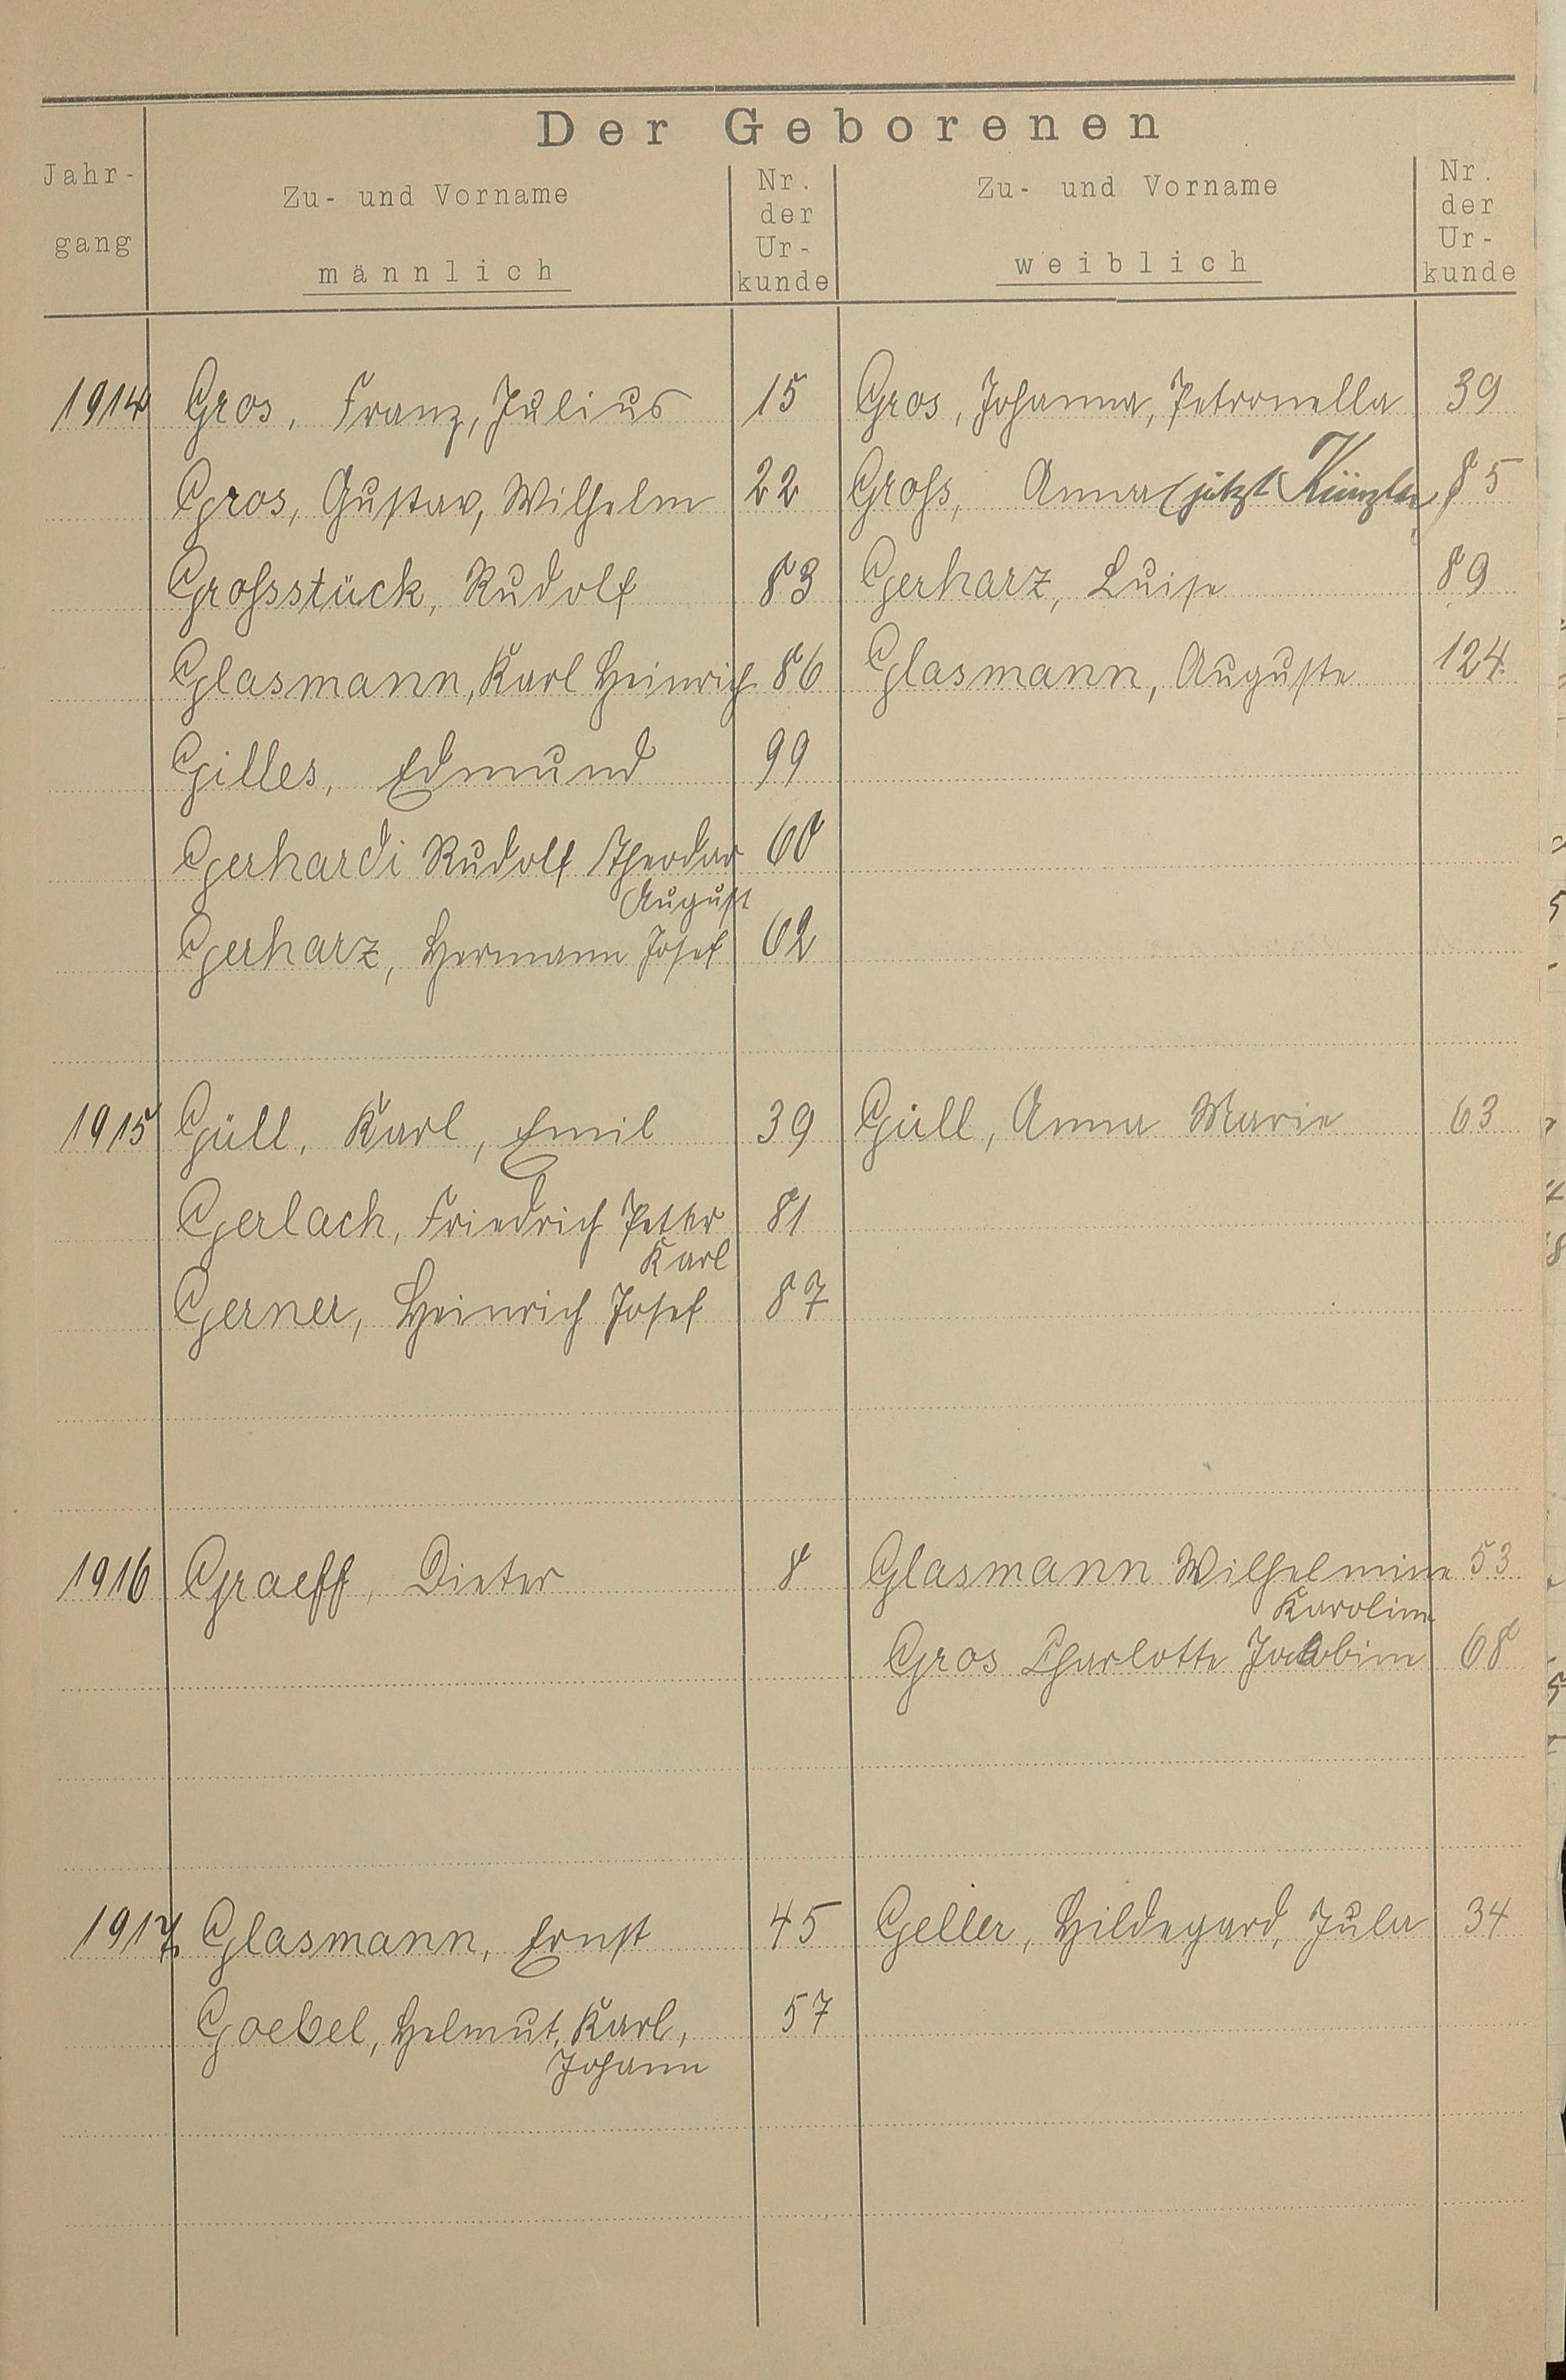 Der Geborenen
Jahr-
gang
Zu- und Vorname
männlich
Nr.
der
Ur-
kunde
Zu- und Vorname
weiblich
Nr.
der
Ur-
kunde
1914 Gros, Franz, Julius 15 Gros, Johanna, Petronella 39
Gros, Gustav, Wilhelm 22 Groſs, Anna (jetzt Künzler) 85
Groſsstück, Rudolf 83 Gerharz, Luise 89
Glasmann, Karl Heinrich 86 Glasmann, Auguste 124
Gilles, Edmund 99
Gerhardi Rudolf Theodor 60
August
Gerharz, Hermann Josef 62
1915 Güll, Karl, Emil 39 Güll, Anna Marie 63
Gerlach, Friedrich Peter 81
Karl
Gerner, Heinrich Josef 87
1916 Graeff, Dieter 8 Glasmann Wilhelmine 53
Karoline
Gros Charlotte Jakobine 68
1917 Glasmann, Ernst 45 Geller, Hildegard, Jula 34
Goebel, Helmut, Karl, 57
Johann